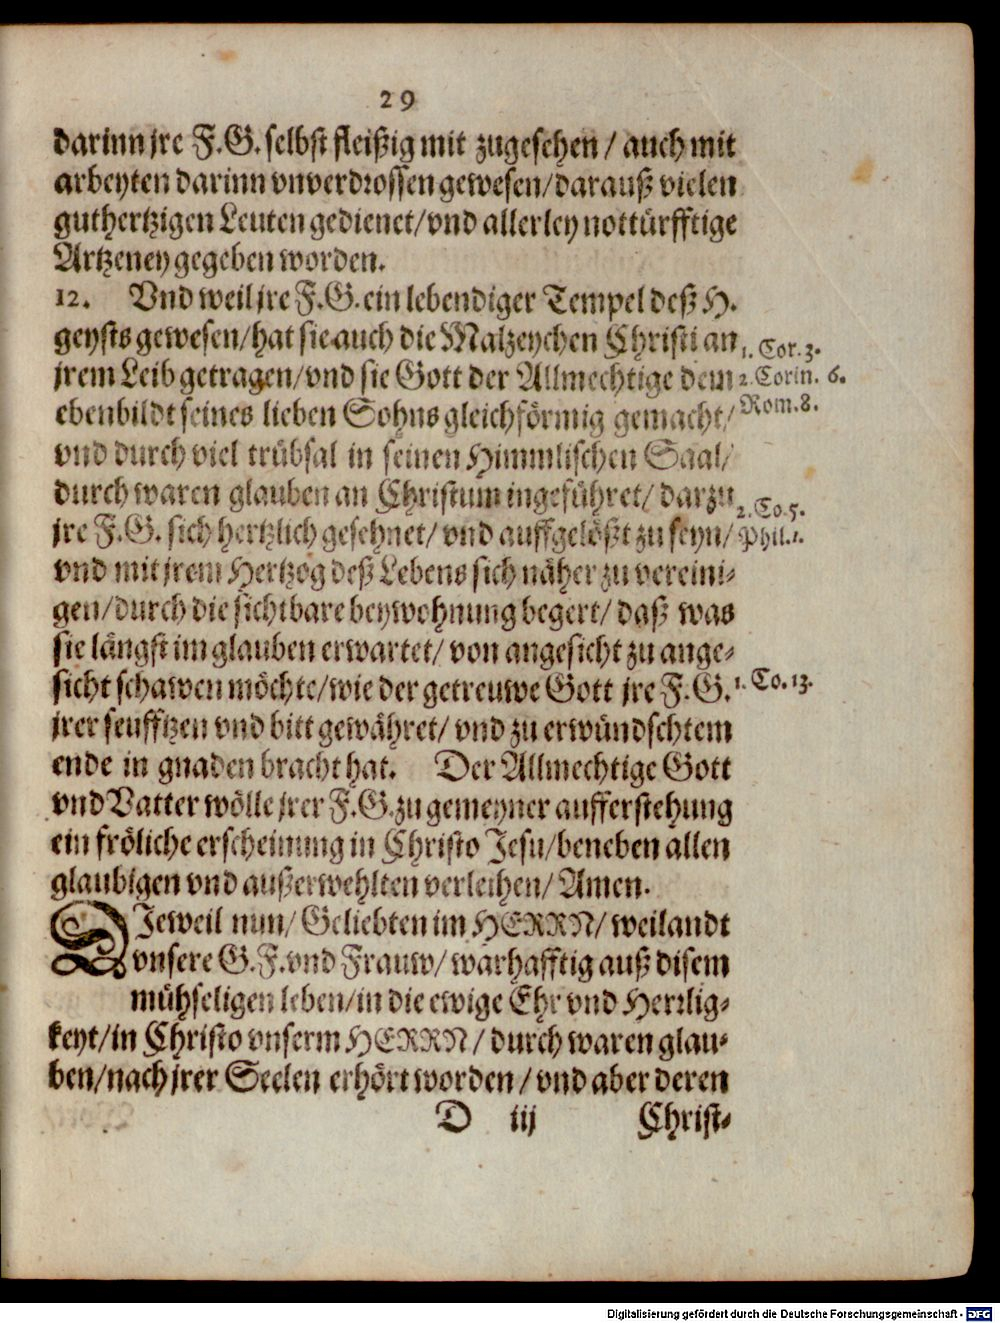 29
darinn jre F.G. selbst fleißig mit zugesehen / auch mit
arbeyten darinn vnverdrossen gewesen/darauß vielen
guthertzigen Leuten gedienet/vnd allerley nottürfftige
Artzeney gegeben worden.
12. Vnd weil jre F.G. ein lebendiger Tempel deß H.
geysts gewesen/hat sie auch die Malzeychen Christi an
1. Cor. 3.
jrem Leib getragen/vnd sie Gott der Allmechtige dem
2. Corin. 6.
ebenbildt seines lieben Sohns gleichförmig gemacht/
Rom. 8.
vnd durch viel trübsal in seinen Himmlischen Saal/
durch waren glauben an Christum ingeführet/ darzu
2. Co. 5.
jre F.G. sich hertzlich gesehnet/ vnd auffgelößt zu seyn/
Phil. 1.
vnd mit jrem Hertzog deß Lebens sich näher zu vereini-
gen/durch die sichtbare beywohnung begert/ daß was
sie längst im glauben erwartet/ von angesicht zu ange-
sicht schawen möchte/wie der getreuwe Gott jre F.G.
1. Co. 13.
jrer seufftzen vnd bitt gewähret/ vnd zu erwündschtem
ende in gnaden bracht hat. Der Allmechtige Gott
vnd Vatter wölle jrer F.G. zu gemeyner aufferstehung
ein fröliche erscheinung in Christo Jesu/beneben allen
glaubigen vnd außerwehlten verleihen/ Amen.
DJeweil nun/ Geliebten im HERRN/ weilandt
vnsere G.F. vnd Frauw/ warhafftig auß disem
mühseligen leben/in die ewige Ehr vnd Herrlig-
keyt/in Christo vnserm HERRN/ durch waren glau-
ben/nach jrer Seelen erhört worden / vnd aber deren
D iij Christ-
Digitalisierung gefördert durch die Deutsche Forschungsgemeinschaft - DFG